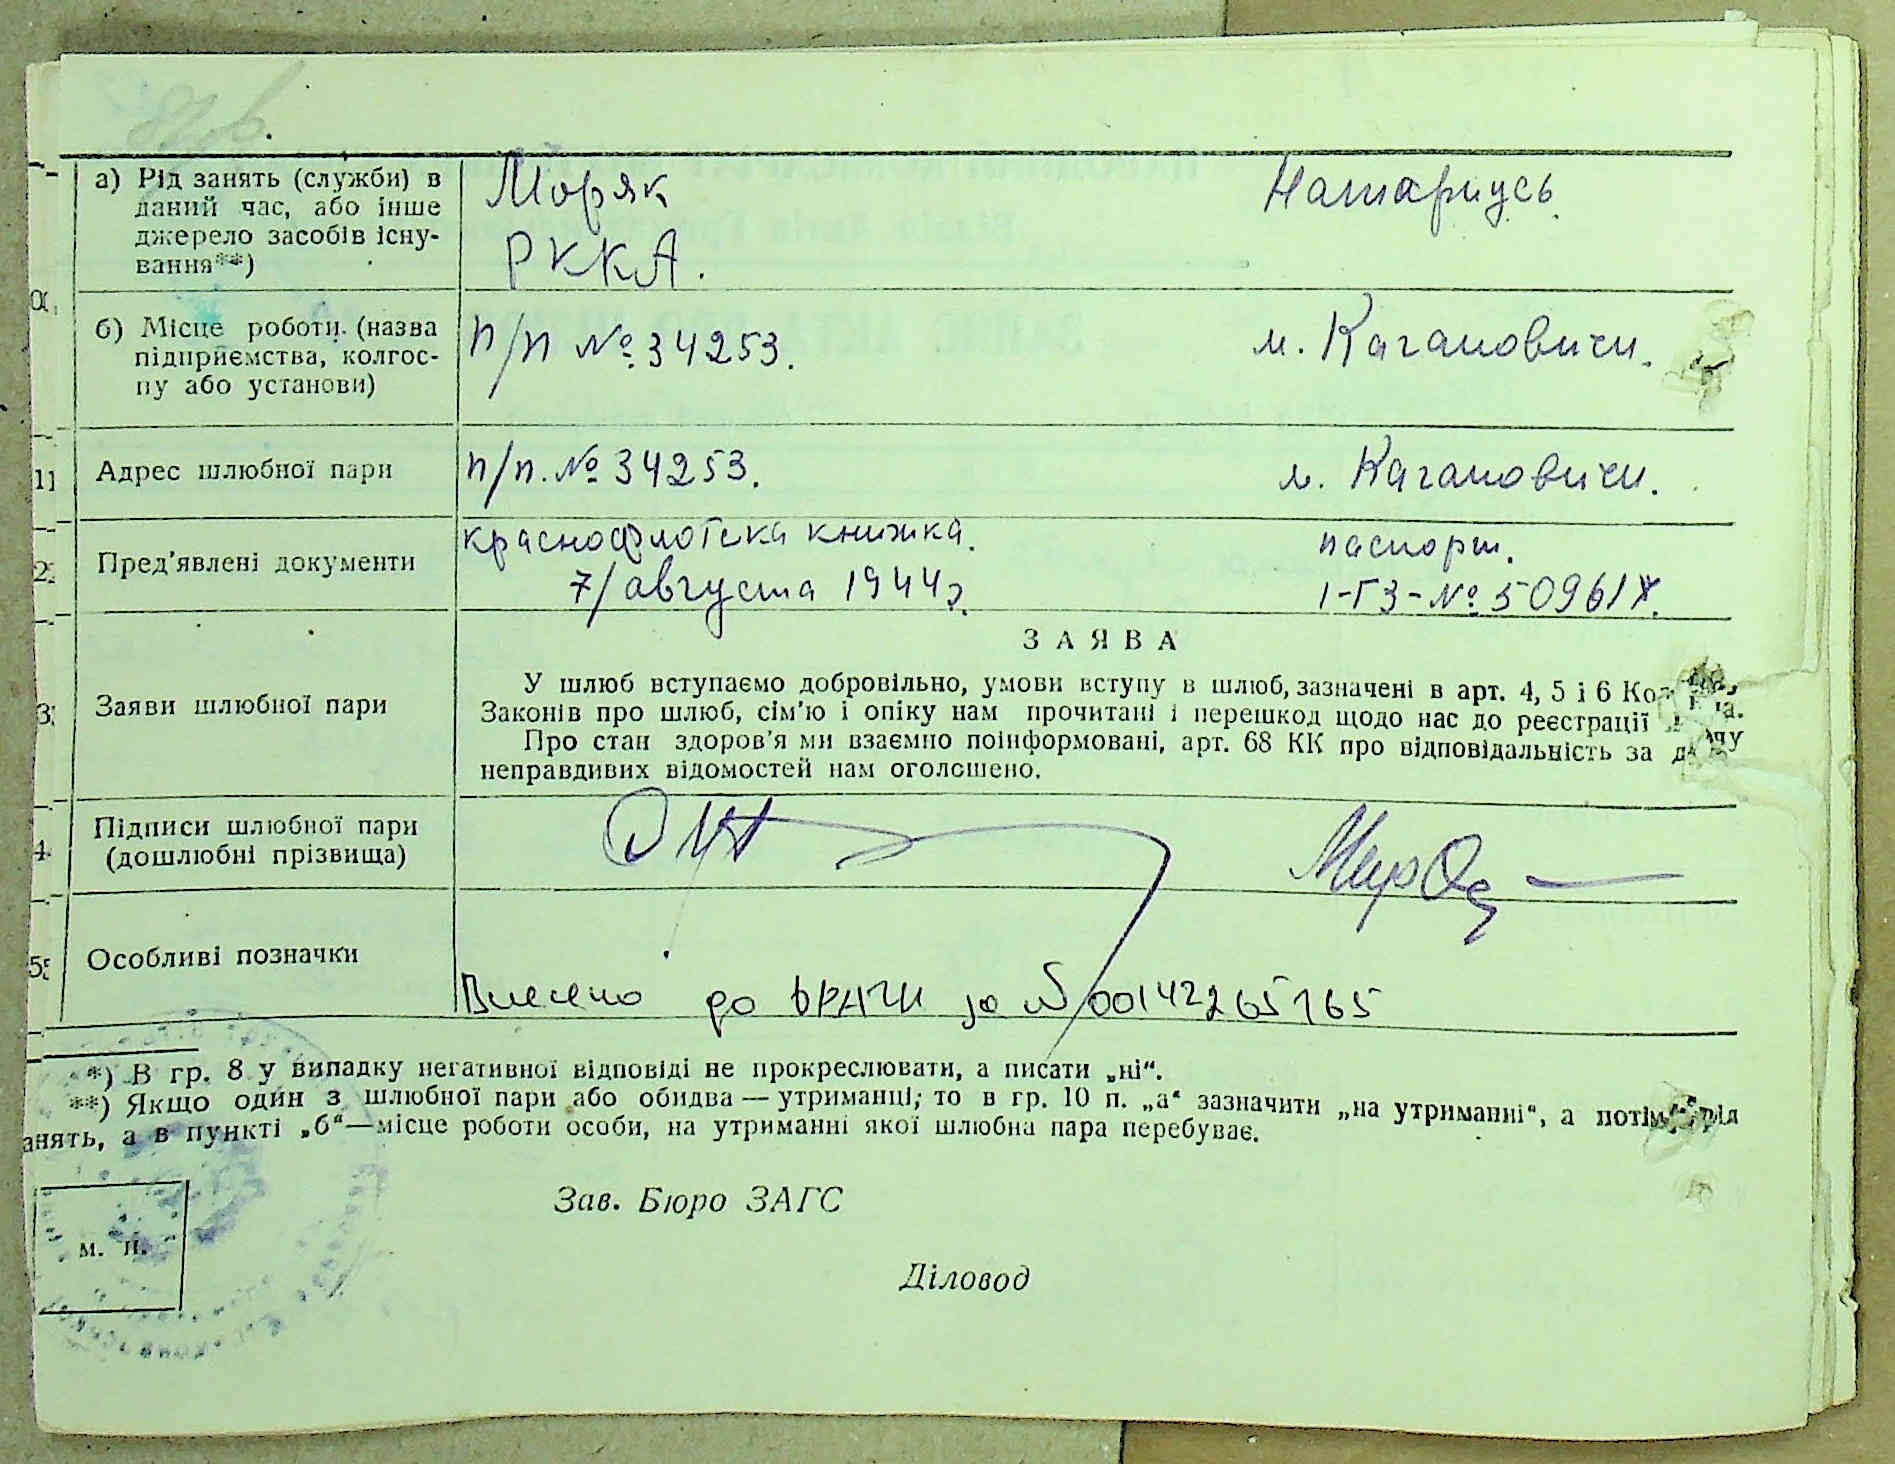 а) Рід занять (служби) в
даний час, або інше
джерело засобів існу-
вання**)
Моряк
РККА.
Натариусь
б) Місце роботи (назва
підприємства, колгос-
пу або установи)
п/п № 34253.
м. Кагановичи.
11
Адрес шлюбної пари
п/п. № 34253.
м. Кагановичи.
Пред'явлені документи
краснофлотска книжка.
7/августа 1944 г.
паспорт.
I-ГЗ-№
З А Я В А
Заяви шлюбної пари
У шлюб вступаємо добровільно, умови вступу в шлюб, зазначені в арт. 4, 5 і 6
Законів про шлюб, сім'ю і опіку нам прочитані і перешкод щодо нас до реєстрації
Про стан здоров'я ми взаємно поінформовані, арт. 68 КК про відповідальність за
неправдивих відомостей нам оголошено.
Підписи шлюбної пари
(дошлюбні прізвища)
Особливі позначки
Внесено до ДРАЦС за № 00142265765
*) В гр. 8 у випадку негативної відповіді не прокреслювати, а писати „ні“.
**) Якщо один з шлюбної пари або обидва — утриманці, то в гр. 10 п. „а“ зазначити „на утриманні“, а потім рід
анять, а в пункті „б“—місце роботи особи, на утриманні якої шлюбна пара перебуває.
Зав. Бюро ЗАГС
м. п.
Діловод